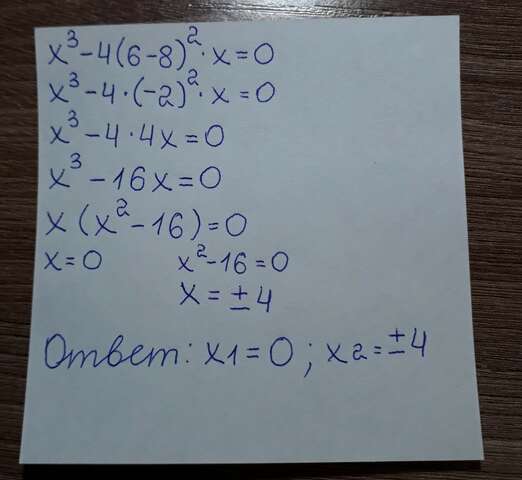 x³-4(6-8)²·x=0
x³-4·(-2)²·x=0
x³-4·4x=0
x³-16x=0
x(x²-16)=0
x=0 x²-16=0
x=±4
Ответ: x1=0; x2=±4